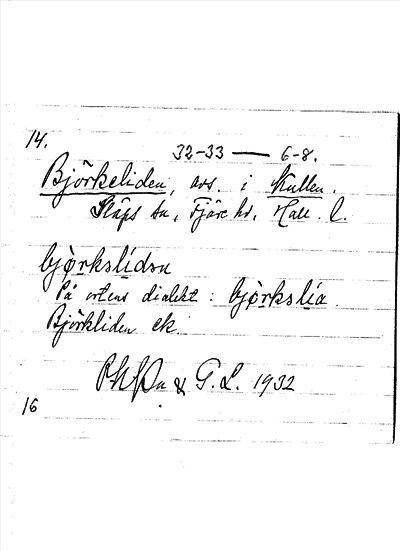 14.
32-33 — 6-8.
Björkeliden, avs. i Kullen.
Släps sn, Fjäre hd, Hall. l.
bjǫrkslidən
På ortens dialekt: bjǫrkslia
Björkliden ek.
& G. L. 1932
16